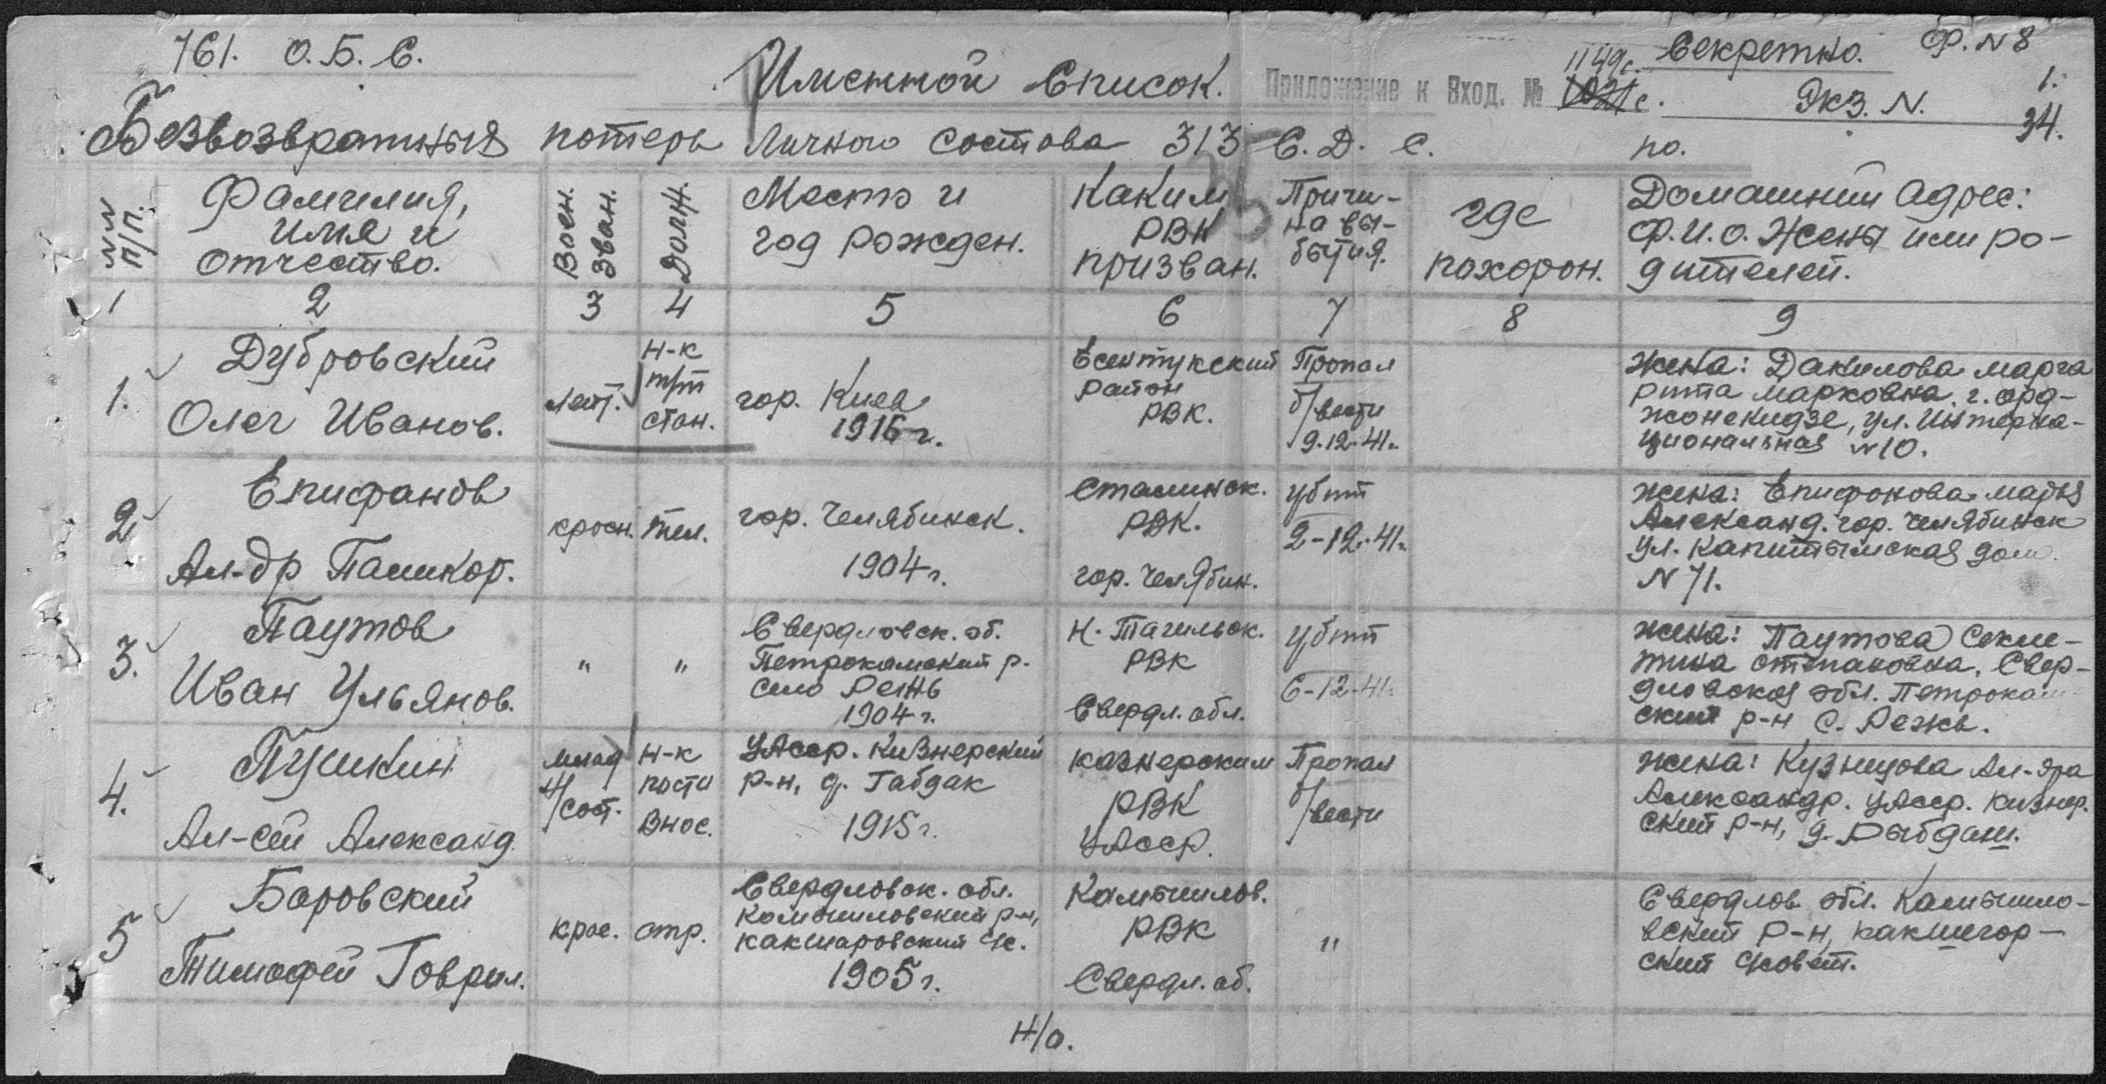 761. О. Б. С.
Секретно. Ф. N 8
Именной Список. Приложение к Вход. № 1149с.
Экз. N. 1.
34.
Безвозвратных потерь Личного состава 313 С. Д. с. по.
NN п/п.
Фамилия, имя и отчество.
Воен. Зван.
Долж.
Место и год рожден.
Каким РВК призван.
Причина выбытия.
где похорон.
Домашний адрес: Ф.И.О. Жены или родителей.
1 2 3 4 5 6 7 8 9
1.
Дубровский
Олег Иванов.
лейт.
н-к
т/т
стан.
гор. Киев
1916 г.
Есентукский
район
РВК.
Пропал
б/вести
9.12.41г.
жена: Данилова Марга
рита Марковна, г. орд-
жоникидзе, ул. Интерна-
циональная N10.
2
Епифанов
Ал-др
красн.
тел.
гор. Челябинск.
1904 г.
Сталинск.
РВК.
гор. Челябин.
убит
2-12-41г.
жена: Епифонова Марья
Александ. гор. Челябинск
ул. дом.
N 71.
3.
Паутов
Иван Ульянов.
" "
Свердловск. об.
Петрокамский р.
село Режь
1904 г.
Н. Тагильск.
РВК
Свердл. обл.
убит
6-12-41г.
жена: Паутова Секле-
тина степановна, Свер-
дловская обл. Петрокам
ский р-н с. Режь.
4.
Пушкин
Ал-сей Александ.
млад
н/сост.
н-к
пости
внос.
УАсср. Кизнерский
р-н, д. Габдак
1915 г.
казнерским
РВК
УАССР.
Пропал
б/вести
жена: Кузнецова Ал-дра
Александр. УАсср. Кизнер.
ский р-н, д. Рыбдаш.
5
Боровский
Тимофей Говрил.
крас.
стр.
Свердловск. обл.
Комышловский р-н,
какшаровский с/с.
1905 г.
Камышлов.
РВК
Свердл. об.
"
Свердлов. обл. Камышло-
вский р-н, какшегор-
ский совет.
н/о.